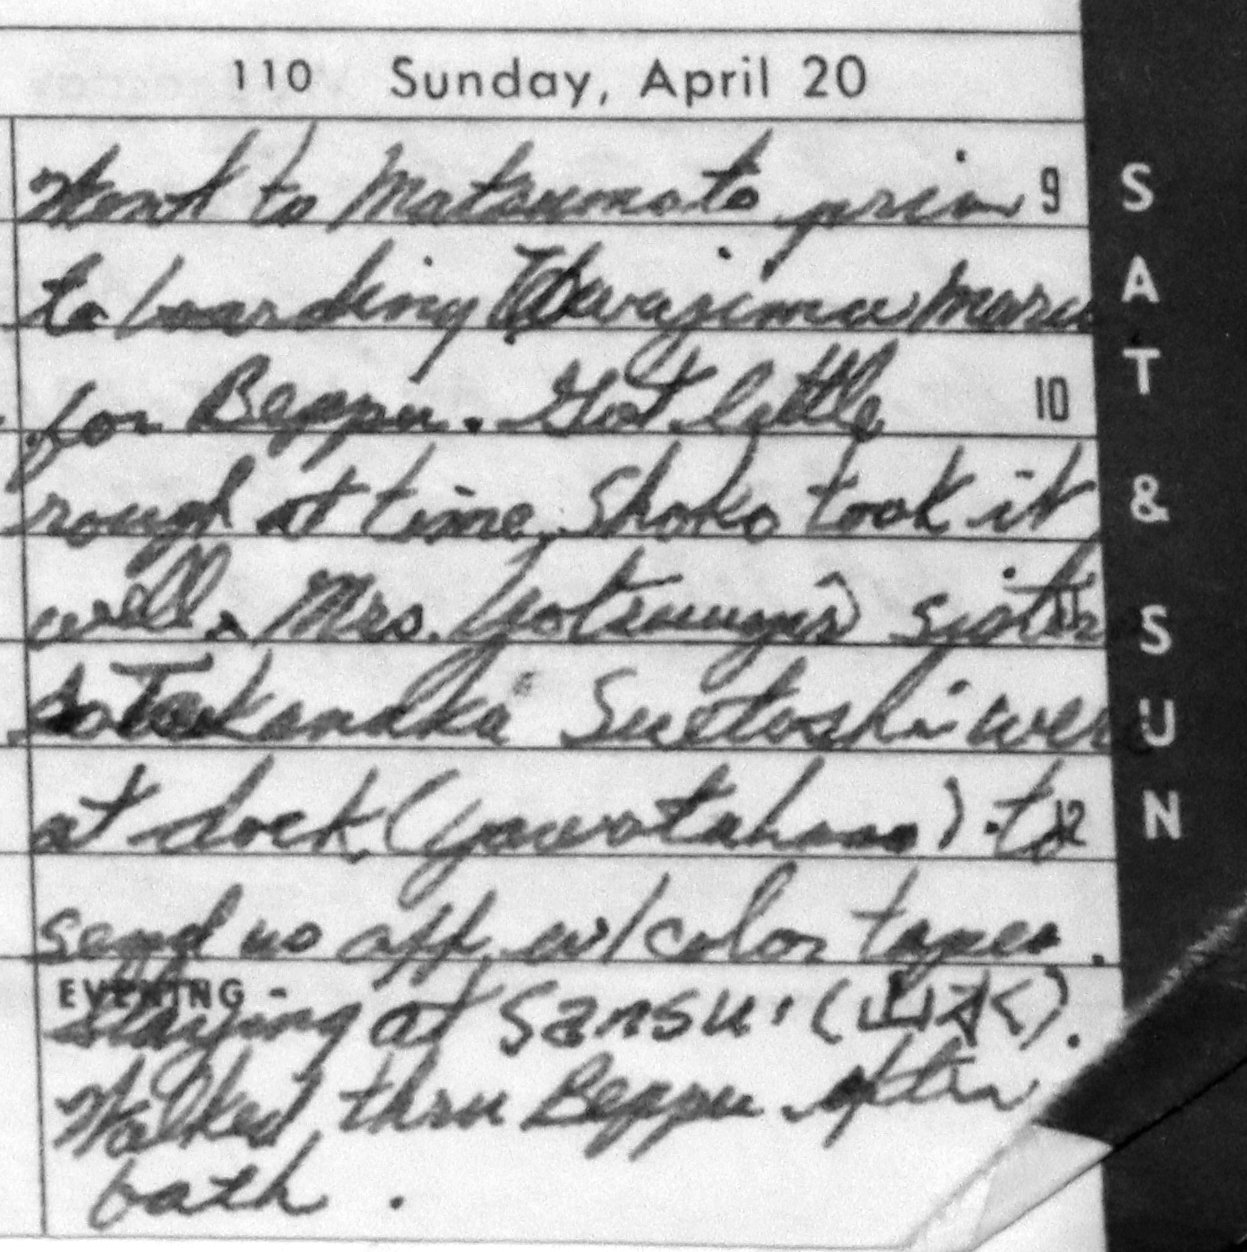 110 Sunday, April 20
Went to Matsumoto prior 9
to boarding Uwajima Maru
for Beppu. Got little 10
rough at time, Shoko took it
well. Mrs. sister 11
Suetoshi were
at dock (Yawatahama) to 12
send us off w/color tapes.
EVENING -
Staying at Sansui (山水).
Walked thru Beppu after
bath.
SAT & SUN